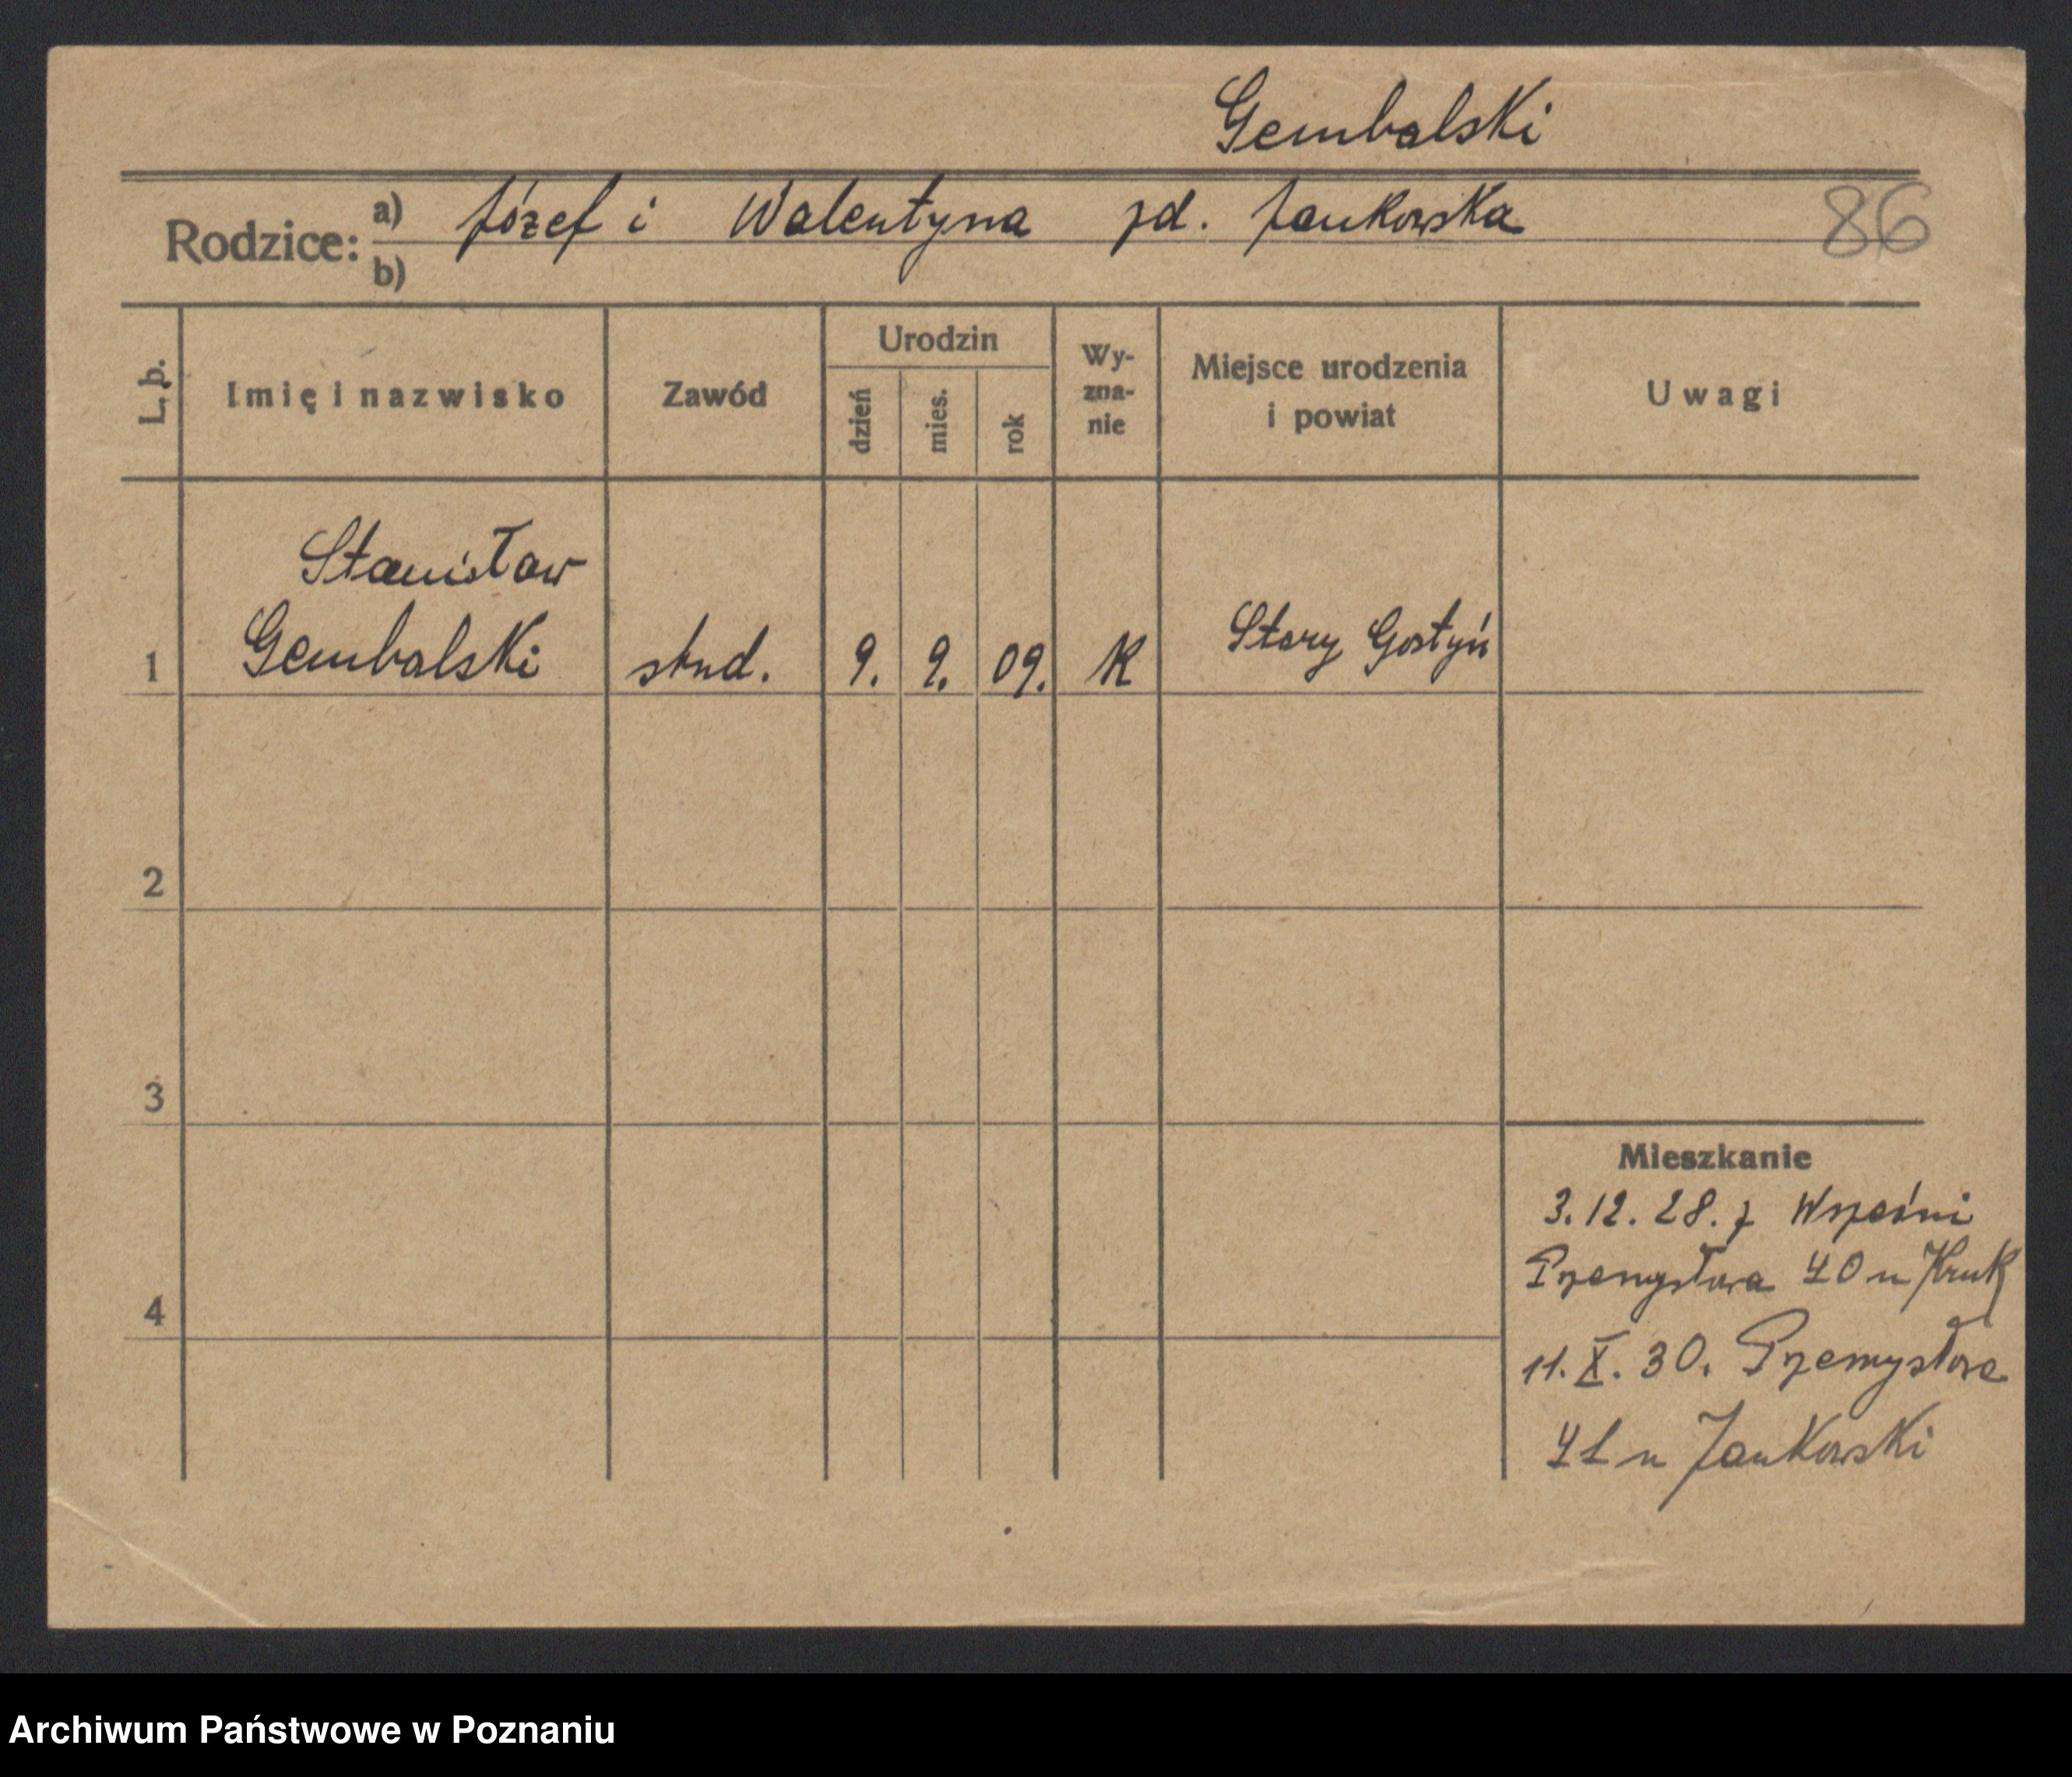 Gembalski
Rodzice: a) Józef i Walentyna zd. Jankowska 86
b)
L. p. Imię i nazwisko Zawód Urodzin dzień mies. rok Wy-zna-nie Miejsce urodzenia i powiat Uwagi
Stanisław
1 Gembalski stud. 9. 9. 09. K Stary Gostyń
2
3
Mieszkanie
3.12.28. z Wrześni
Przemysłowa 40 u Kruk
4
11.X.30. Przemysłowa
41 u Jankowski
Archiwum Państwowe w Poznaniu